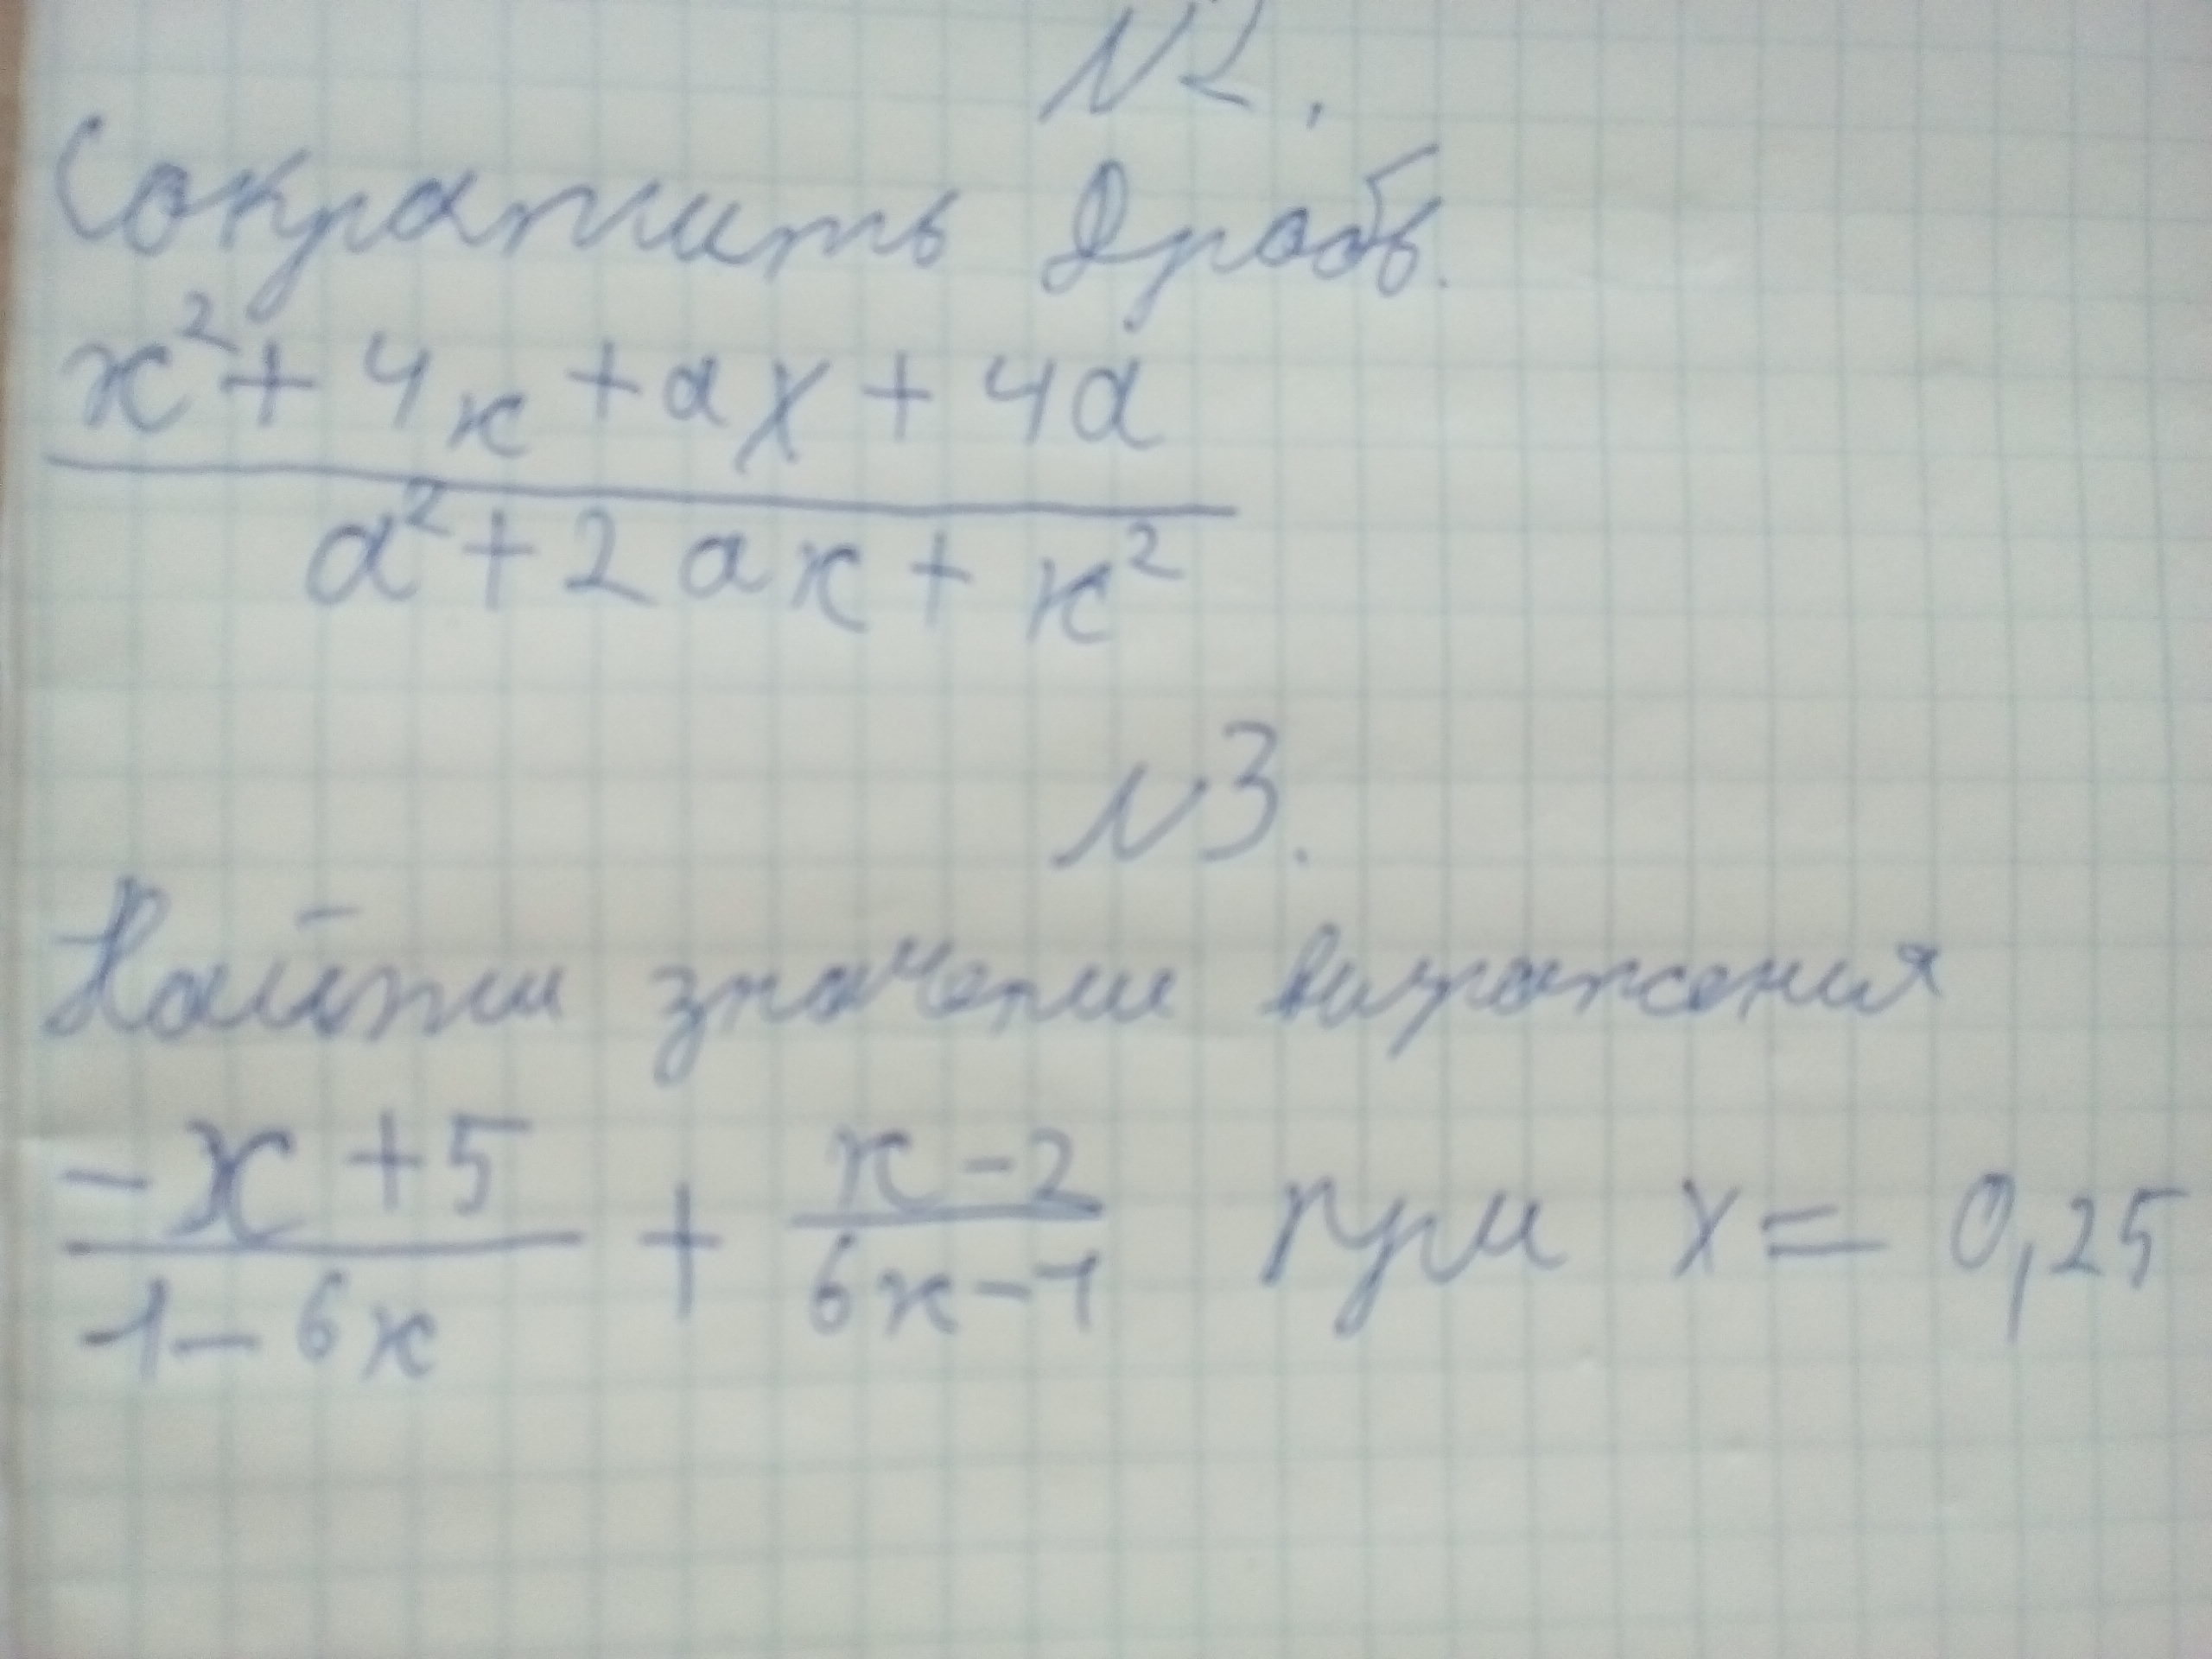 N2.
Сократить дробь.
x²+4x+ax+4a
a²+2ax+x²
N3.
Найти значении выражения
-x+5/1-6x + x-2/6x-1 при x=0,25